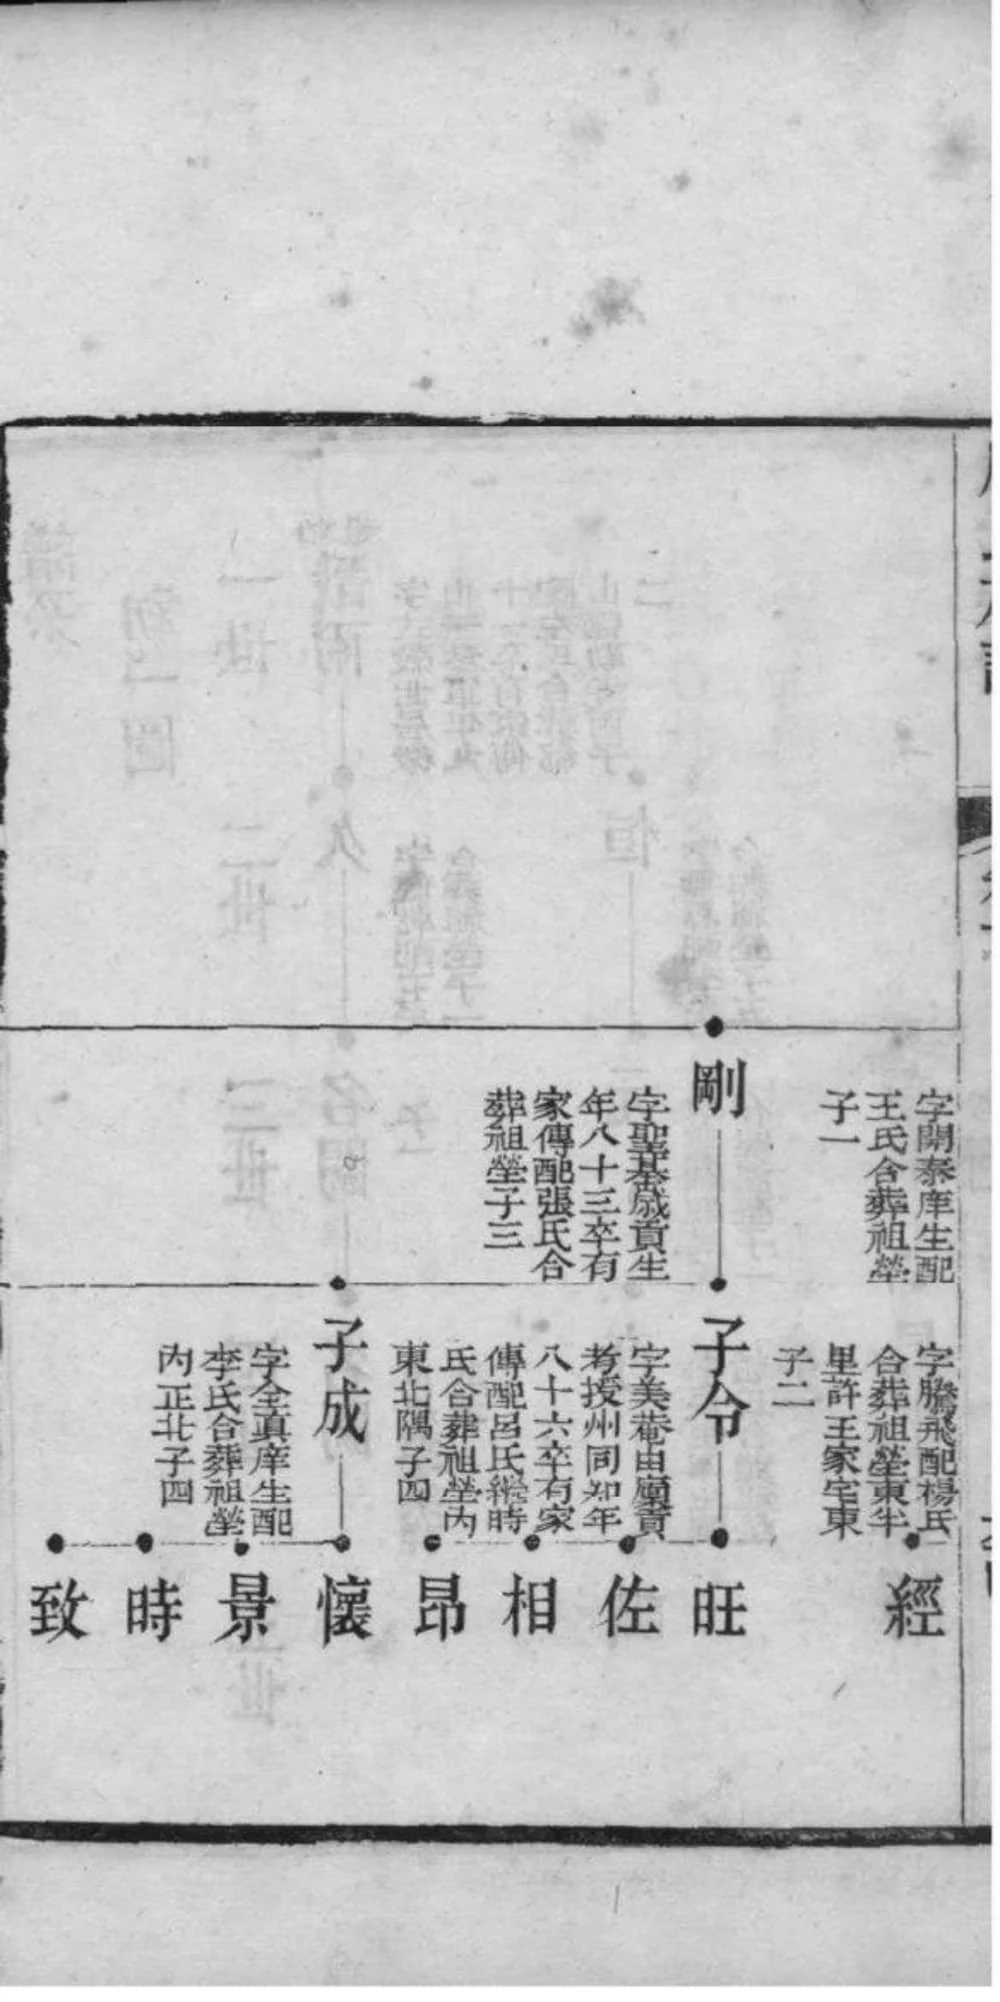 字開泰庠生配
王氏合葬祖塋
子一
剛
字聖基歲貢生
年八十三卒有
家傳配張氏合
葬祖塋子三
字騰飛配楊氏
合葬祖塋東半
里許王家宅東
子二
子令
字美菴由廩貢
考授州同知年
八十六卒有家
傳配呂氏繼時
氏合葬祖塋內
東北隅子四
子成
字全真庠生配
李氏合葬祖塋
內正北子四
經
旺
佐
相
昂
懷
景
時
致